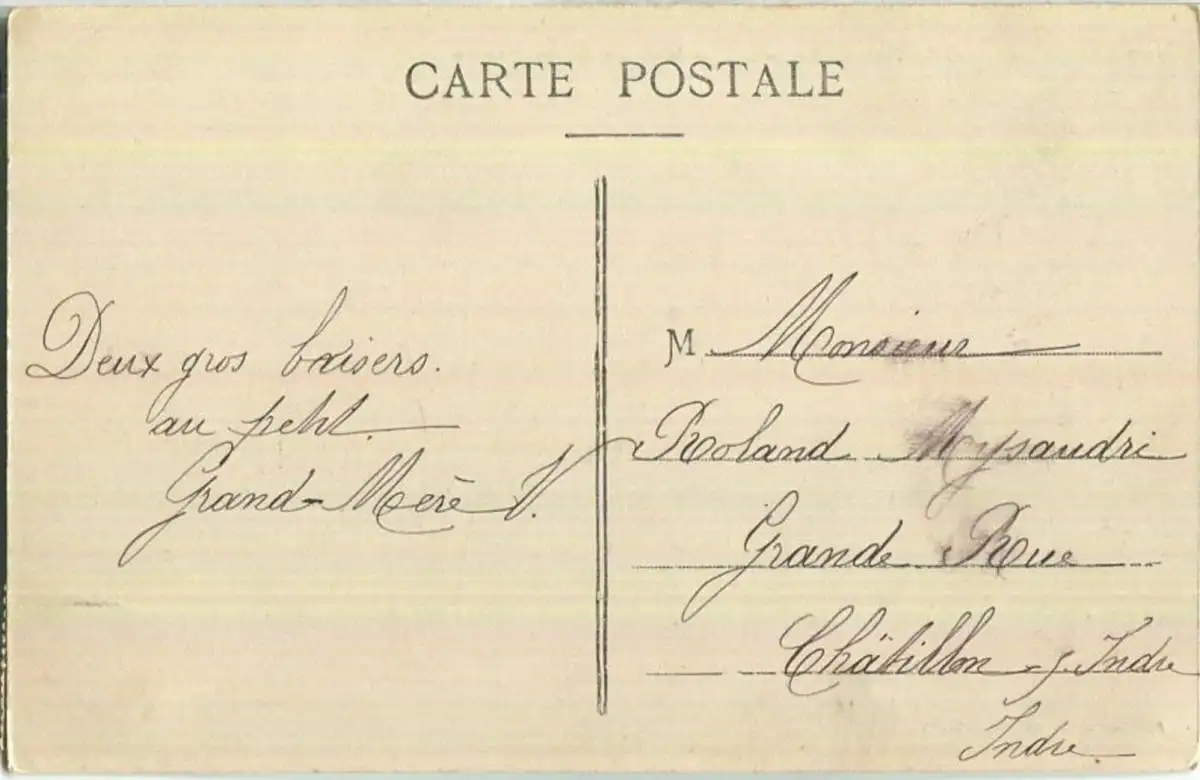 CARTE POSTALE
Deux gros baisers.
au petit.
Grand-Merè V.
M Monsieur
Roland Mysandri
Grande Rue
Châtillon s/ Indre
Indre